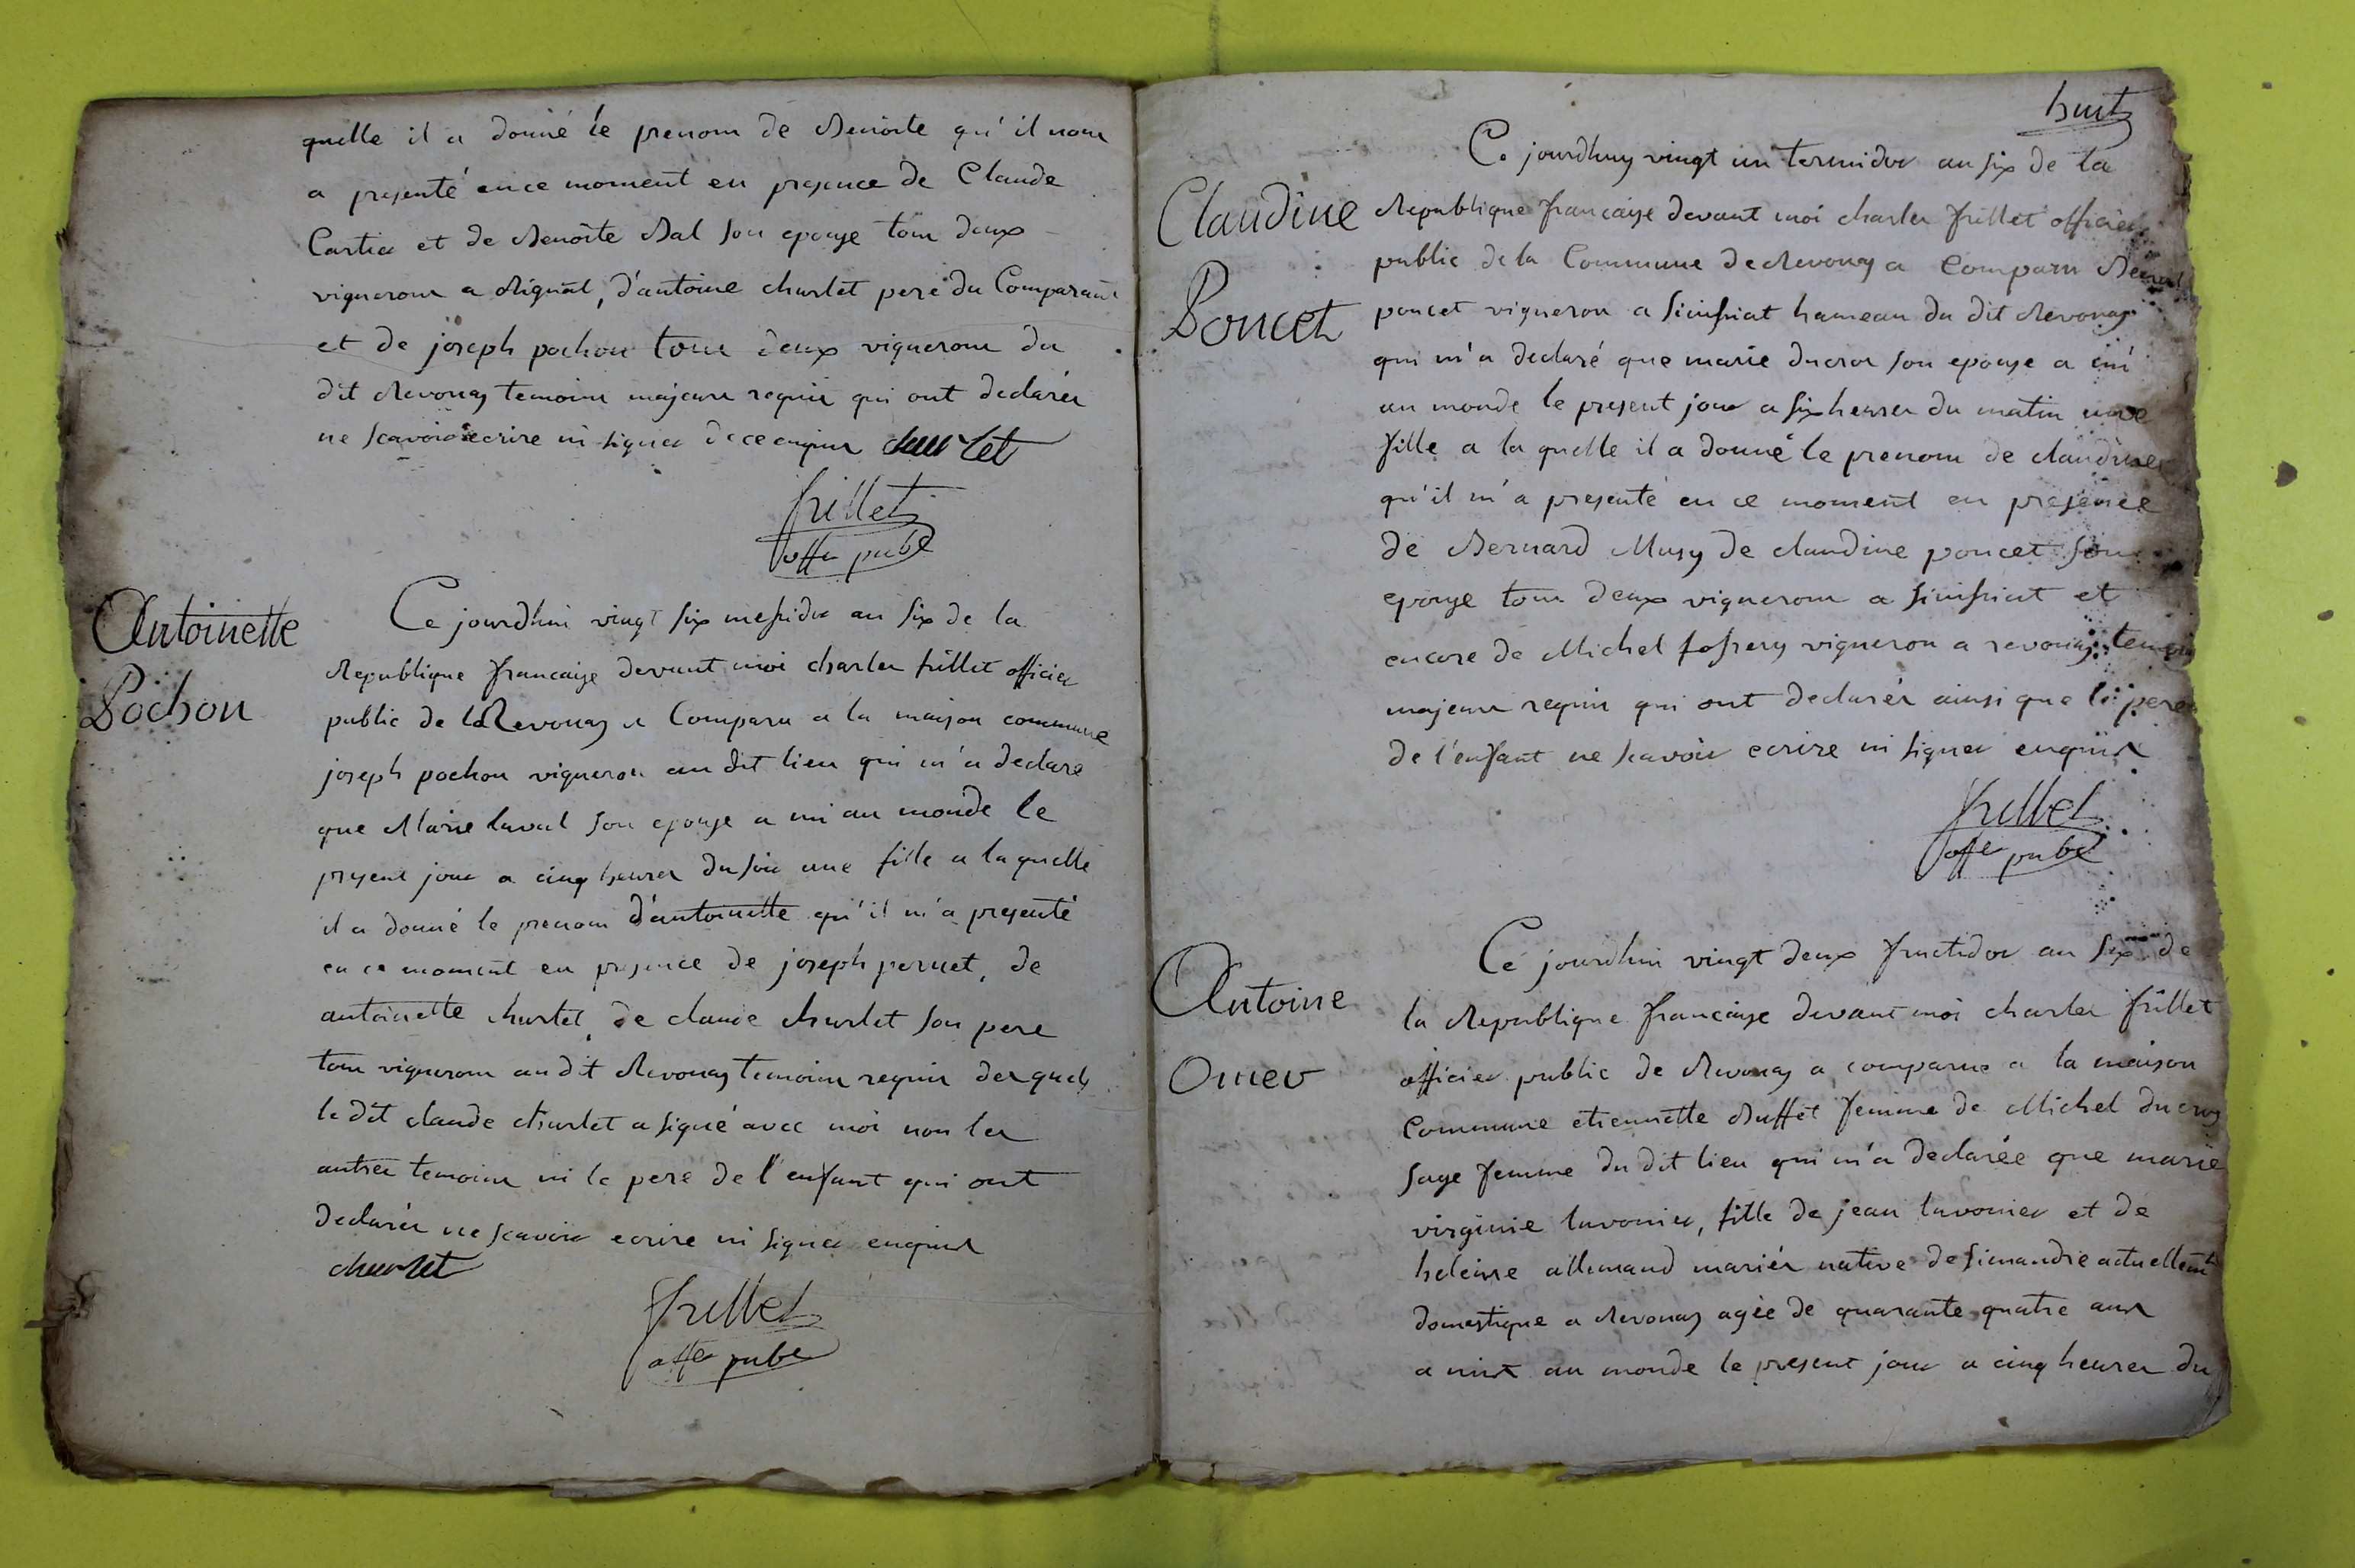 quelle il a donné le prenom de Benoite qu'il nous
a presenté en ce moment en presence de Claude
Cartier et de Benoite Bal son epouse tous deux
vignerons a Rignat, d'antoine churlet pere du Comparant
et de joseph pochon tous deux vignerons du
dit Revonas temoins majeurs requis qui ont declarés
ne scavoir ecrire ni signer de ce enquis churlet
frillet
offer pube
Antoinette
Pochon
Ce jourdhui vingt six messidor an six de la
Republique francaise devant moi charles frillet officier
public de la Revonas a Comparu a la maison commune
joseph pochon vigneron au dit lieu qui m'a declare
que Marie laval son epouse a mi au monde le
present jour a cinq heures du soir une fille a laquelle
il a donné le prenom d'antoinette qu'il m'a presenté
en ce moment en presence de joseph pernet, de
antoinette churlet, de claude churlet son pere
tous vignerons au dit Revonas temoins requis des quels
le dit claude churlet a signé avec moi non les
autres temoins ni le pere de l'enfant qui ont
declarés ne scavoir ecrire ni signer enquis
churlet
frillet
offer pube
huit
Claudine
Poncet
Ce jourdhuy vingt un termidor an six de la
Republique francaise devant moi charles frillet officier
public de la Commune de Revonas a Comparu
poncet vigneron a Simfriat hameau du dit Revonas
qui m'a declaré que marie ducros son epouse a mi
au monde le present jour a six heures du matin une
fille a la quelle il a donné le prenom de claudine
qu'il m'a presenté en ce moment en presence
de Bernard Musy de claudine poncet son
epouse tous deux vignerons a Simfriat et
encore de Michel vigneron a revonas temoins
majeurs requis qui ont declarés ainsi que le pere
de l'enfant ne scavoir ecrire ni signer enquis
frillet
offe pube
Antoine
Omer
Ce jourdhui vingt deux fructidor an six de
la Republique francaise devant moi charles frillet
officier public de Revonas a comparue a la maison
Commune etiennette Buffet femme de Michel ducros
sage femme du dit lieu qui m'a declarée que marie
virginie lavonier, fille de jean lavonier et de
heleine allemand mariés native de Simandre actuellemt
domestique a Revonas agée de quarante quatre ans
a mis au monde le present jour a cinq heures du